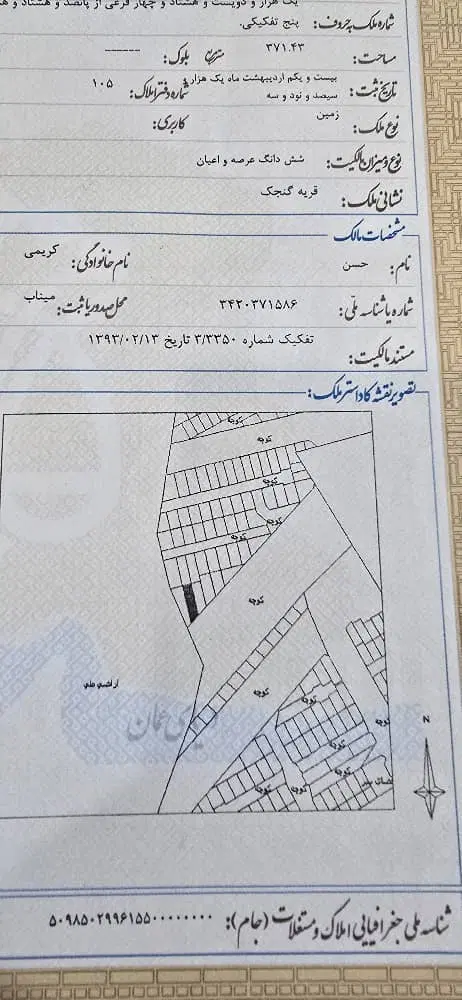 یک هزار و دویست و هشتاد و چهار فرعی از پانصد و هشتاد و
شماره ملک به حروف: پنج تفکیکی.
مساحت: ۳۷۱.۴۳ متر مربع بلوک: -------
تاریخ ثبت: بیست و یکم اردیبهشت ماه یک هزار و سیصد و نود و سه شماره دفتر املاک: ۱۰۵
نوع ملک: زمین کاربری:
نوع و میزان مالکیت: شش دانگ عرصه و اعیان
نشانی ملک: قریه گنجک
مشخصات مالک
نام: حسن نام خانوادگی: کریمی
شماره یا شناسه ملی: ۳۴۲۰۳۷۱۵۸۶ محل صدور یا ثبت: میناب
مستند مالکیت: تفکیک شماره ۳/۳۳۵۰ تاریخ ۱۳۹۳/۰۲/۱۳
تصویر نقشه کاداستر ملک:
کوچه
کوچه
کوچه
کوچه
کوچه
کوچه
کوچه
اراضی ملی
کوچه
کوچه
N
کوچه
کوچه
کوچه
کوچه
شناسه ملی جغرافیایی املاک و مستغلات (جام): ۵۰۹۸۵۰۲۹۹۶۱۵۵۰۰۰۰۰۰۰۰۰